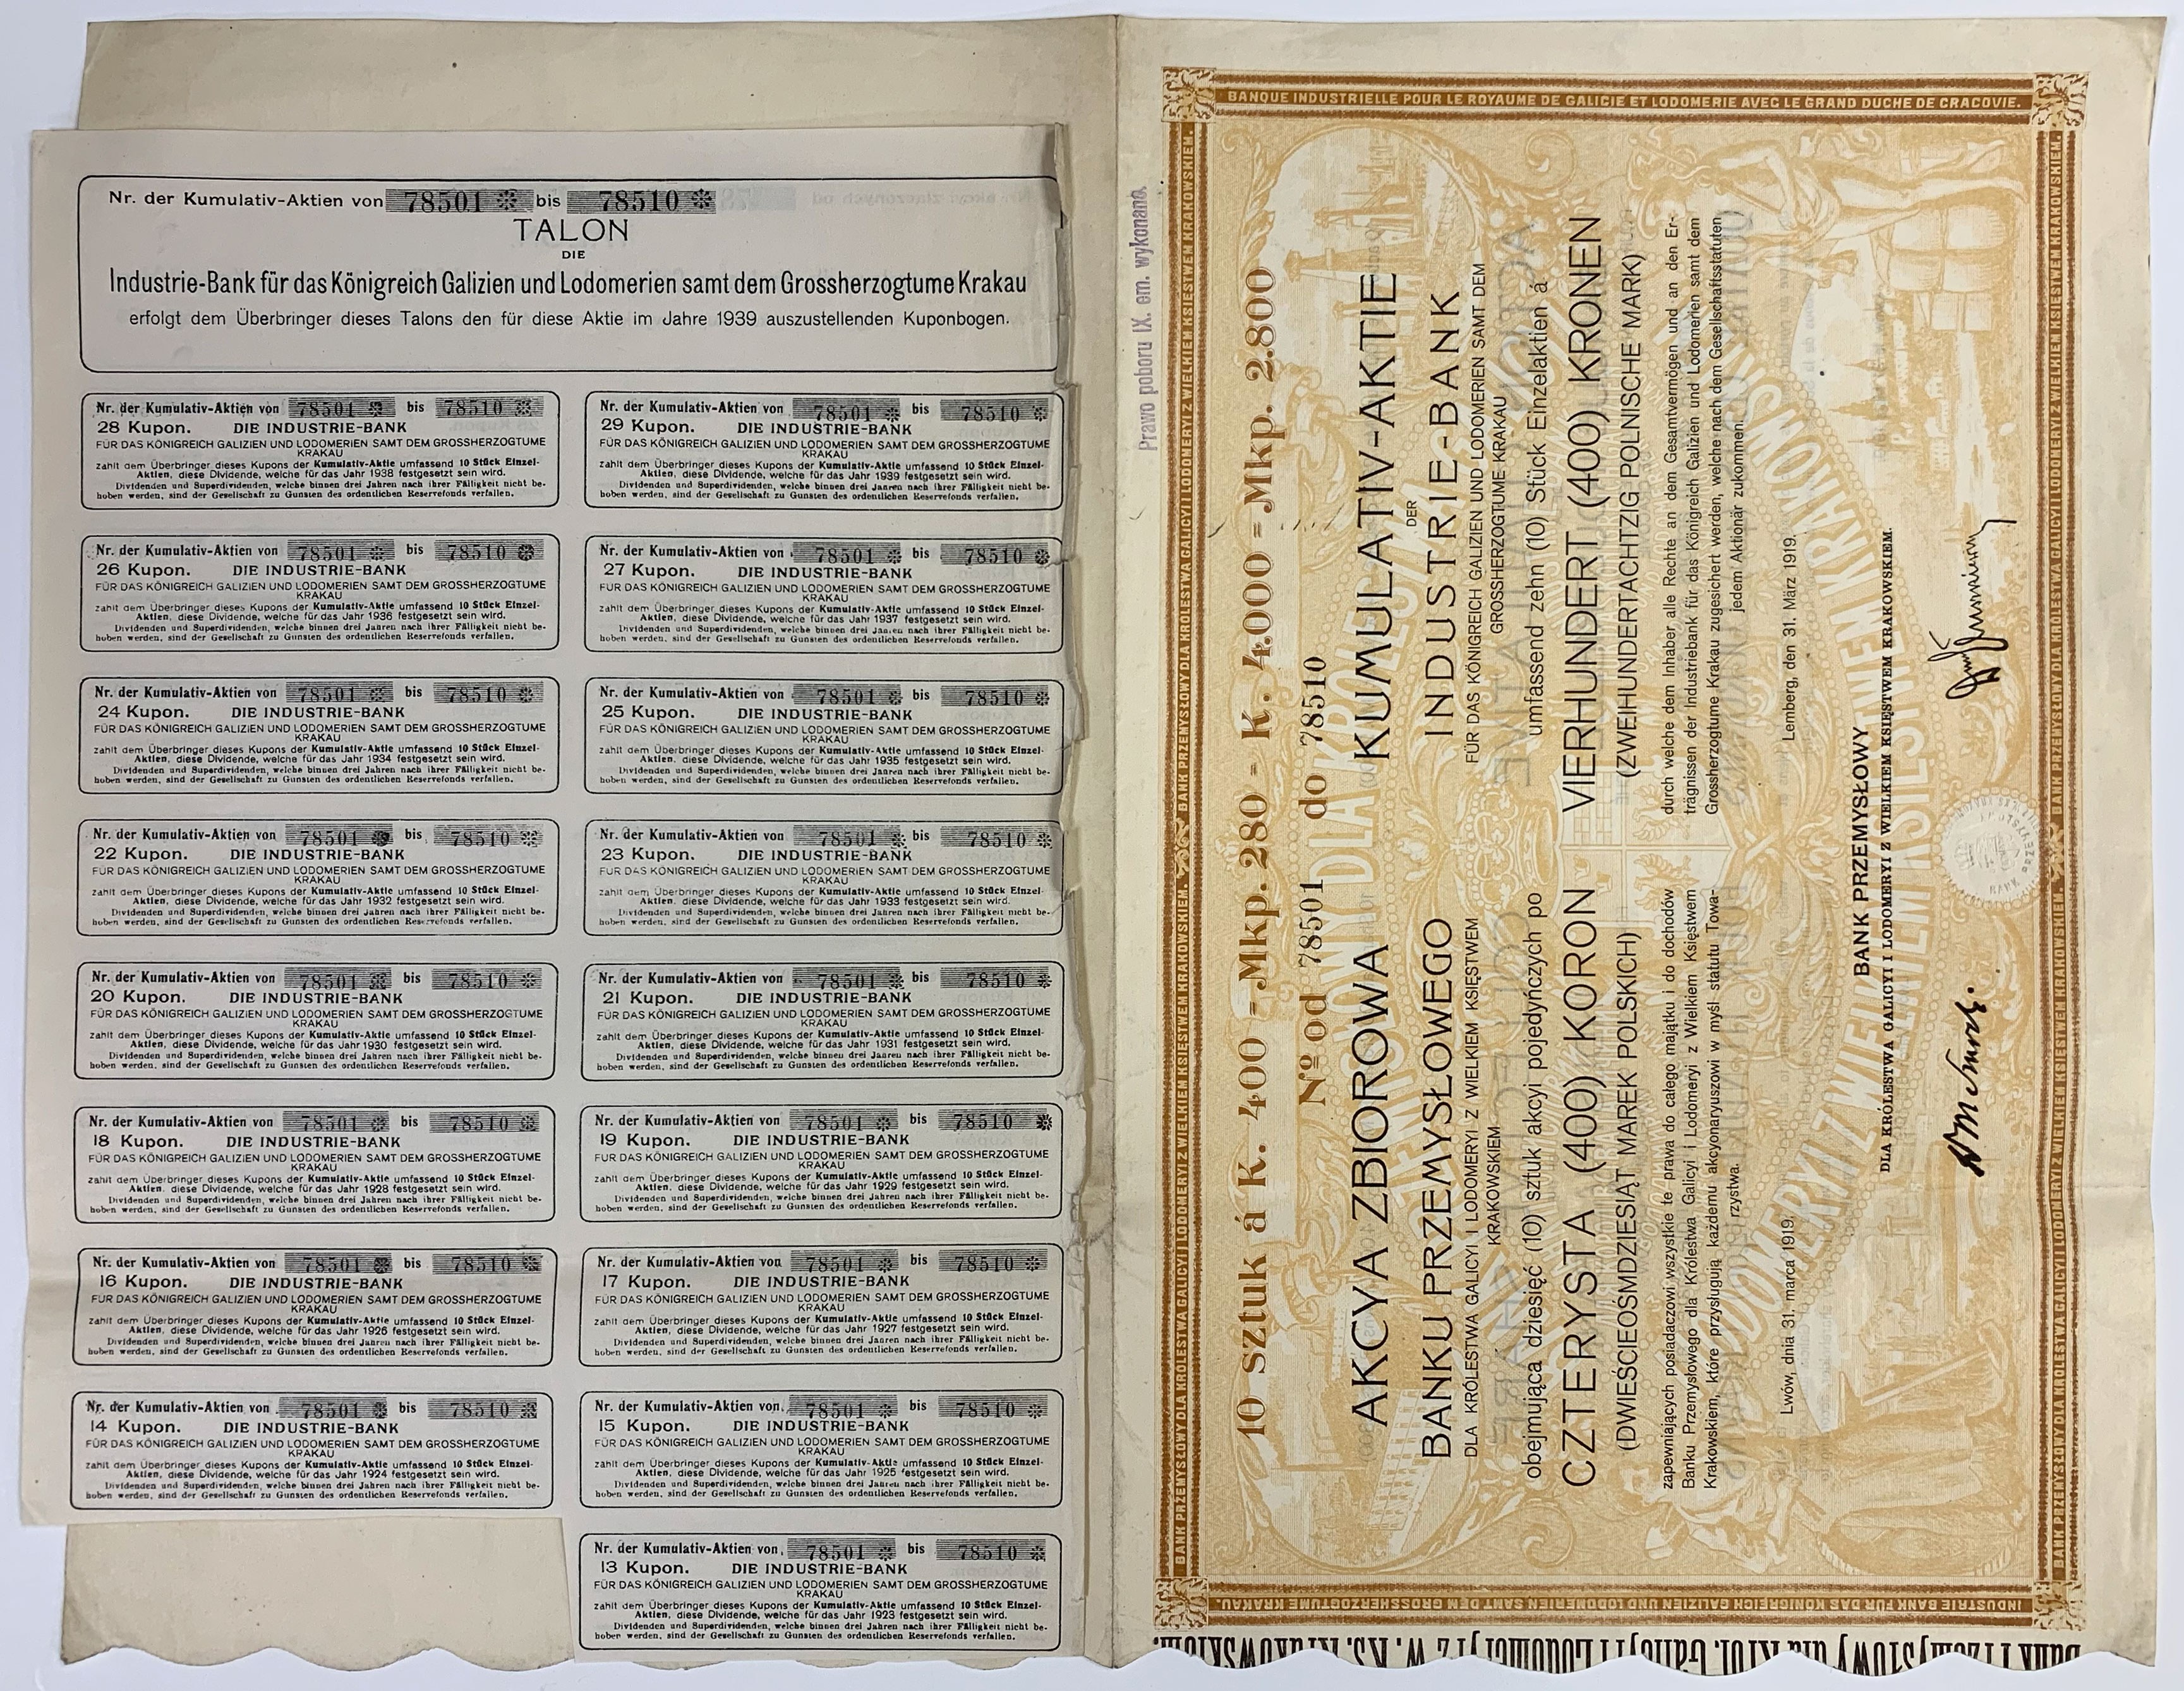 Nr. der Kumulativ-Aktien von 78501 bis 78510
TALON
DIE
Industrie-Bank für das Königreich Galizien und Lodomerien samt dem Grossherzogtume Krakau
erfolgt dem Überbringer dieses Talons den für diese Aktie im Jahre 1939 auszustellenden Kuponbogen.
Nr. der Kumulativ-Aktien von 78501 bis 78510
28 Kupon. DIE INDUSTRIE-BANK
FÜR DAS KÖNIGREICH GALIZIEN UND LODOMERIEN SAMT DEM GROSSHERZOGTUME
KRAKAU
zahlt dem Überbringer dieses Kupons der Kumulativ-Aktie umfassend 10 Stück Einzel-
Aktien, diese Dividende, welche für das Jahr 1938 festgesetzt sein wird.
Dividenden und Superdividenden, welche binnen drei Jahren nach ihrer Fälligkeit nicht be-
hoben werden, sind der Gesellschaft zu Gunsten des ordentlichen Reservefonds verfallen.
Nr. der Kumulativ-Aktien von 78501 bis 78510
29 Kupon. DIE INDUSTRIE-BANK
FÜR DAS KÖNIGREICH GALIZIEN UND LODOMERIEN SAMT DEM GROSSHERZOGTUME
KRAKAU
zahlt dem Überbringer dieses Kupons der Kumulativ-Aktie umfassend 10 Stück Einzel-
Aktien, diese Dividende, welche für das Jahr 1939 festgesetzt sein wird.
Dividenden und Superdividenden, welche binnen drei Jahren nach ihrer Fälligkeit nicht be-
hoben werden, sind der Gesellschaft zu Gunsten des ordentlichen Reservefonds verfallen.
Nr. der Kumulativ-Aktien von 78501 bis 78510
26 Kupon. DIE INDUSTRIE-BANK
FÜR DAS KÖNIGREICH GALIZIEN UND LODOMERIEN SAMT DEM GROSSHERZOGTUME
KRAKAU
zahlt dem Überbringer dieses Kupons der Kumulativ-Aktie umfassend 10 Stück Einzel-
Aktien, diese Dividende, welche für das Jahr 1936 festgesetzt sein wird.
Dividenden und Superdividenden, welche binnen drei Jahren nach ihrer Fälligkeit nicht be-
hoben werden, sind der Gesellschaft zu Gunsten des ordentlichen Reservefonds verfallen.
Nr. der Kumulativ-Aktien von 78501 bis 78510
27 Kupon. DIE INDUSTRIE-BANK
FÜR DAS KÖNIGREICH GALIZIEN UND LODOMERIEN SAMT DEM GROSSHERZOGTUME
KRAKAU
zahlt dem Überbringer dieses Kupons der Kumulativ-Aktie umfassend 10 Stück Einzel-
Aktien, diese Dividende, welche für das Jahr 1937 festgesetzt sein wird.
Dividenden und Superdividenden, welche binnen drei Jahren nach ihrer Fälligkeit nicht be-
hoben werden, sind der Gesellschaft zu Gunsten des ordentlichen Reservefonds verfallen.
Nr. der Kumulativ-Aktien von 78501 bis 78510
24 Kupon. DIE INDUSTRIE-BANK
FÜR DAS KÖNIGREICH GALIZIEN UND LODOMERIEN SAMT DEM GROSSHERZOGTUME
KRAKAU
zahlt dem Überbringer dieses Kupons der Kumulativ-Aktie umfassend 10 Stück Einzel-
Aktien, diese Dividende, welche für das Jahr 1934 festgesetzt sein wird.
Dividenden und Superdividenden, welche binnen drei Jahren nach ihrer Fälligkeit nicht be-
hoben werden, sind der Gesellschaft zu Gunsten des ordentlichen Reservefonds verfallen.
Nr. der Kumulativ-Aktien von 78501 bis 78510
25 Kupon. DIE INDUSTRIE-BANK
FÜR DAS KÖNIGREICH GALIZIEN UND LODOMERIEN SAMT DEM GROSSHERZOGTUME
KRAKAU
zahlt dem Überbringer dieses Kupons der Kumulativ-Aktie umfassend 10 Stück Einzel-
Aktien, diese Dividende, welche für das Jahr 1935 festgesetzt sein wird.
Dividenden und Superdividenden, welche binnen drei Jahren nach ihrer Fälligkeit nicht be-
hoben werden, sind der Gesellschaft zu Gunsten des ordentlichen Reservefonds verfallen.
Nr. der Kumulativ-Aktien von 78501 bis 78510
22 Kupon. DIE INDUSTRIE-BANK
FÜR DAS KÖNIGREICH GALIZIEN UND LODOMERIEN SAMT DEM GROSSHERZOGTUME
KRAKAU
zahlt dem Überbringer dieses Kupons der Kumulativ-Aktie umfassend 10 Stück Einzel-
Aktien, diese Dividende, welche für das Jahr 1932 festgesetzt sein wird.
Dividenden und Superdividenden, welche binnen drei Jahren nach ihrer Fälligkeit nicht be-
hoben werden, sind der Gesellschaft zu Gunsten des ordentlichen Reservefonds verfallen.
Nr. der Kumulativ-Aktien von 78501 bis 78510
23 Kupon. DIE INDUSTRIE-BANK
FÜR DAS KÖNIGREICH GALIZIEN UND LODOMERIEN SAMT DEM GROSSHERZOGTUME
KRAKAU
zahlt dem Überbringer dieses Kupons der Kumulativ-Aktie umfassend 10 Stück Einzel-
Aktien, diese Dividende, welche für das Jahr 1933 festgesetzt sein wird.
Dividenden und Superdividenden, welche binnen drei Jahren nach ihrer Fälligkeit nicht be-
hoben werden, sind der Gesellschaft zu Gunsten des ordentlichen Reservefonds verfallen.
Nr. der Kumulativ-Aktien von 78501 bis 78510
20 Kupon. DIE INDUSTRIE-BANK
FÜR DAS KÖNIGREICH GALIZIEN UND LODOMERIEN SAMT DEM GROSSHERZOGTUME
KRAKAU
zahlt dem Überbringer dieses Kupons der Kumulativ-Aktie umfassend 10 Stück Einzel-
Aktien, diese Dividende, welche für das Jahr 1930 festgesetzt sein wird.
Dividenden und Superdividenden, welche binnen drei Jahren nach ihrer Fälligkeit nicht be-
hoben werden, sind der Gesellschaft zu Gunsten des ordentlichen Reservefonds verfallen.
Nr. der Kumulativ-Aktien von 78501 bis 78510
21 Kupon. DIE INDUSTRIE-BANK
FÜR DAS KÖNIGREICH GALIZIEN UND LODOMERIEN SAMT DEM GROSSHERZOGTUME
KRAKAU
zahlt dem Überbringer dieses Kupons der Kumulativ-Aktie umfassend 10 Stück Einzel-
Aktien, diese Dividende, welche für das Jahr 1931 festgesetzt sein wird.
Dividenden und Superdividenden, welche binnen drei Jahren nach ihrer Fälligkeit nicht be-
hoben werden, sind der Gesellschaft zu Gunsten des ordentlichen Reservefonds verfallen.
Nr. der Kumulativ-Aktien von 78501 bis 78510
18 Kupon. DIE INDUSTRIE-BANK
FÜR DAS KÖNIGREICH GALIZIEN UND LODOMERIEN SAMT DEM GROSSHERZOGTUME
KRAKAU
zahlt dem Überbringer dieses Kupons der Kumulativ-Aktie umfassend 10 Stück Einzel-
Aktien, diese Dividende, welche für das Jahr 1928 festgesetzt sein wird.
Dividenden und Superdividenden, welche binnen drei Jahren nach ihrer Fälligkeit nicht be-
hoben werden, sind der Gesellschaft zu Gunsten des ordentlichen Reservefonds verfallen.
Nr. der Kumulativ-Aktien von 78501 bis 78510
19 Kupon. DIE INDUSTRIE-BANK
FÜR DAS KÖNIGREICH GALIZIEN UND LODOMERIEN SAMT DEM GROSSHERZOGTUME
KRAKAU
zahlt dem Überbringer dieses Kupons der Kumulativ-Aktie umfassend 10 Stück Einzel-
Aktien, diese Dividende, welche für das Jahr 1929 festgesetzt sein wird.
Dividenden und Superdividenden, welche binnen drei Jahren nach ihrer Fälligkeit nicht be-
hoben werden, sind der Gesellschaft zu Gunsten des ordentlichen Reservefonds verfallen.
Nr. der Kumulativ-Aktien von 78501 bis 78510
16 Kupon. DIE INDUSTRIE-BANK
FÜR DAS KÖNIGREICH GALIZIEN UND LODOMERIEN SAMT DEM GROSSHERZOGTUME
KRAKAU
zahlt dem Überbringer dieses Kupons der Kumulativ-Aktie umfassend 10 Stück Einzel-
Aktien, diese Dividende, welche für das Jahr 1926 festgesetzt sein wird.
Dividenden und Superdividenden, welche binnen drei Jahren nach ihrer Fälligkeit nicht be-
hoben werden, sind der Gesellschaft zu Gunsten des ordentlichen Reservefonds verfallen.
Nr. der Kumulativ-Aktien von 78501 bis 78510
17 Kupon. DIE INDUSTRIE-BANK
FÜR DAS KÖNIGREICH GALIZIEN UND LODOMERIEN SAMT DEM GROSSHERZOGTUME
KRAKAU
zahlt dem Überbringer dieses Kupons der Kumulativ-Aktie umfassend 10 Stück Einzel-
Aktien, diese Dividende, welche für das Jahr 1927 festgesetzt sein wird.
Dividenden und Superdividenden, welche binnen drei Jahren nach ihrer Fälligkeit nicht be-
hoben werden, sind der Gesellschaft zu Gunsten des ordentlichen Reservefonds verfallen.
Nr. der Kumulativ-Aktien von 78501 bis 78510
14 Kupon. DIE INDUSTRIE-BANK
FÜR DAS KÖNIGREICH GALIZIEN UND LODOMERIEN SAMT DEM GROSSHERZOGTUME
KRAKAU
zahlt dem Überbringer dieses Kupons der Kumulativ-Aktie umfassend 10 Stück Einzel-
Aktien, diese Dividende, welche für das Jahr 1924 festgesetzt sein wird.
Dividenden und Superdividenden, welche binnen drei Jahren nach ihrer Fälligkeit nicht be-
hoben werden, sind der Gesellschaft zu Gunsten des ordentlichen Reservefonds verfallen.
Nr. der Kumulativ-Aktien von 78501 bis 78510
15 Kupon. DIE INDUSTRIE-BANK
FÜR DAS KÖNIGREICH GALIZIEN UND LODOMERIEN SAMT DEM GROSSHERZOGTUME
KRAKAU
zahlt dem Überbringer dieses Kupons der Kumulativ-Aktie umfassend 10 Stück Einzel-
Aktien, diese Dividende, welche für das Jahr 1925 festgesetzt sein wird.
Dividenden und Superdividenden, welche binnen drei Jahren nach ihrer Fälligkeit nicht be-
hoben werden, sind der Gesellschaft zu Gunsten des ordentlichen Reservefonds verfallen.
Nr. der Kumulativ-Aktien von 78501 bis 78510
13 Kupon. DIE INDUSTRIE-BANK
FÜR DAS KÖNIGREICH GALIZIEN UND LODOMERIEN SAMT DEM GROSSHERZOGTUME
KRAKAU
zahlt dem Überbringer dieses Kupons der Kumulativ-Aktie umfassend 10 Stück Einzel-
Aktien, diese Dividende, welche für das Jahr 1923 festgesetzt sein wird.
Dividenden und Superdividenden, welche binnen drei Jahren nach ihrer Fälligkeit nicht be-
hoben werden, sind der Gesellschaft zu Gunsten des ordentlichen Reservefonds verfallen.
Prawo poboru IX. em. wykonano.
BANK PRZEMYSŁOWY DLA KRÓLESTWA GALICYI I LODOMERYI Z WIELKIEM KSIĘSTWEM KRAKOWSKIEM. BANK PRZEMYSŁOWY DLA KRÓLESTWA GALICYI I LODOMERYI Z WIELKIEM KSIĘSTWEM KRAKOWSKIEM.
BANQUE INDUSTRIELLE POUR LE ROYAUME DE GALICIE ET LODOMERIE AVEC LE GRAND DUCHE DE CRACOVIE.
10 sztuk á K. 400 = Mkp. 280 = K. 4.000 = Mkp. 2.800
Nº od 78501 do 78510
AKCYA ZBIOROWA
BANKU PRZEMYSŁOWEGO
DLA KRÓLESTWA GALICYI I LODOMERYI Z WIELKIEM KSIĘSTWEM
KRAKOWSKIEM
obejmująca dziesięć (10) sztuk akcyi pojedyńczych po
CZTERYSTA (400) KORON
(DWIEŚCIEOSMDZIESIĄT MAREK POLSKICH)
zapewniających posiadaczowi wszystkie te prawa do całego majątku i do dochodów
Banku Przemysłowego dla Królestwa Galicyi i Lodomeryi z Wielkiem Księstwem
Krakowskiem, które przysługują każdemu akcyonaryuszowi w myśl statutu Towa-
rzystwa.
Lwów, dnia 31. marca 1919.
KUMULATIV-AKTIE
DER
INDUSTRIE-BANK
FÜR DAS KÖNIGREICH GALIZIEN UND LODOMERIEN SAMT DEM
GROSSHERZOGTUME KRAKAU
umfassend zehn (10) Stück Einzelaktien á
VIERHUNDERT (400) KRONEN
(ZWEIHUNDERTACHTZIG POLNISCHE MARK)
durch welche dem Inhaber alle Rechte an dem Gesamtvermögen und an den Er-
trägnissen der Industriebank für das Königreich Galizien und Lodomerien samt dem
Grossherzogtume Krakau zugesichert werden, welche nach dem Gesellschaftsstatuten
jedem Aktionär zukommen.
Lemberg, den 31. März 1919.
BANK PRZEMYSŁOWY
DLA KRÓLESTWA GALICYI I LODOMERYI Z WIELKIEM KSIĘSTWEM KRAKOWSKIEM.
BANK PRZEMYSŁOWY DLA KRÓLESTWA GALICYI I LODOMERYI Z WIELKIEM KSIĘSTWEM KRAKOWSKIEM. BANK PRZEMYSŁOWY DLA KRÓLESTWA GALICYI I LODOMERYI Z WIELKIEM KSIĘSTWEM KRAKOWSKIEM.
INDUSTRIE BANK FÜR DAS KÖNIGREICH GALIZIEN UND LODOMERIEN SAMT DEM GROSSHERZOGTUME KRAKAU.
Bank Przemysłowy dla Król. Galicyi i Lodomeryi z W. Ks. Krakowskiem.